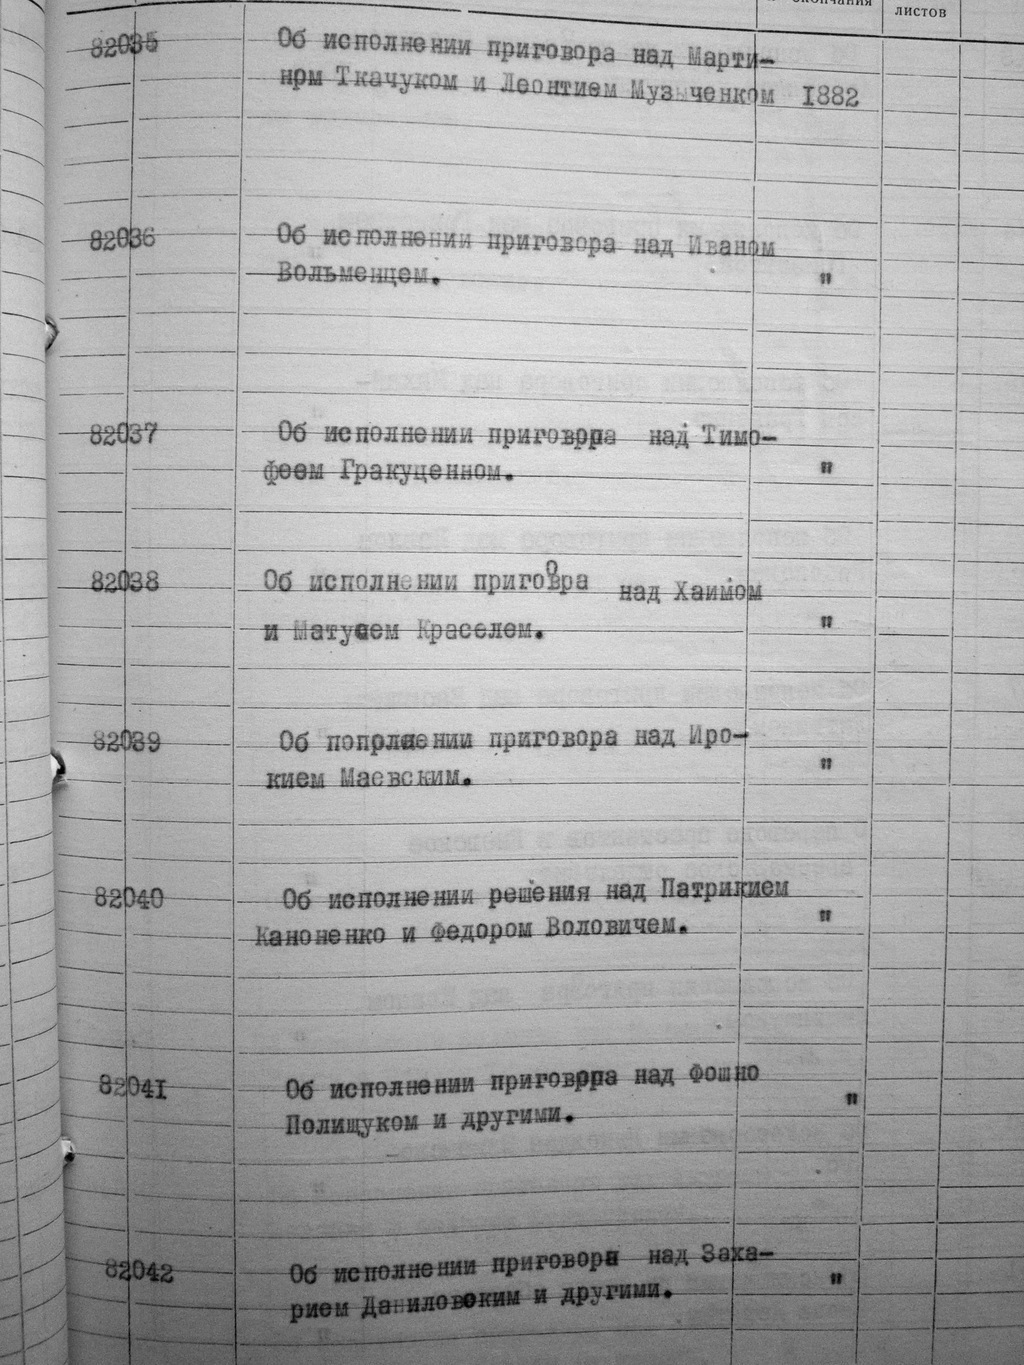 окончания
листов
82035 Об исполнении приговора над Марти-
нрм Ткачуком и Леонтием Музыченком 1882
82036 Об исполнении приговора над Иваном
Вольменцем. "
82037 Об исполнении приговрра над Тимо-
феем Гракуценном. "
82038 Об исполнении приговора над Хаимом
и Матусем Краселем. "
82039 Об попрлнении приговора над Иро-
кием Маевским. "
82040 Об исполнении решения над Патрикием
Каноненко и Федором Воловичем. "
82041 Об исполнении приговрра над Фошно
Полищуком и другими. "
82042 Об исполнении приговора над Заха-
рием Даниловским и другими. "